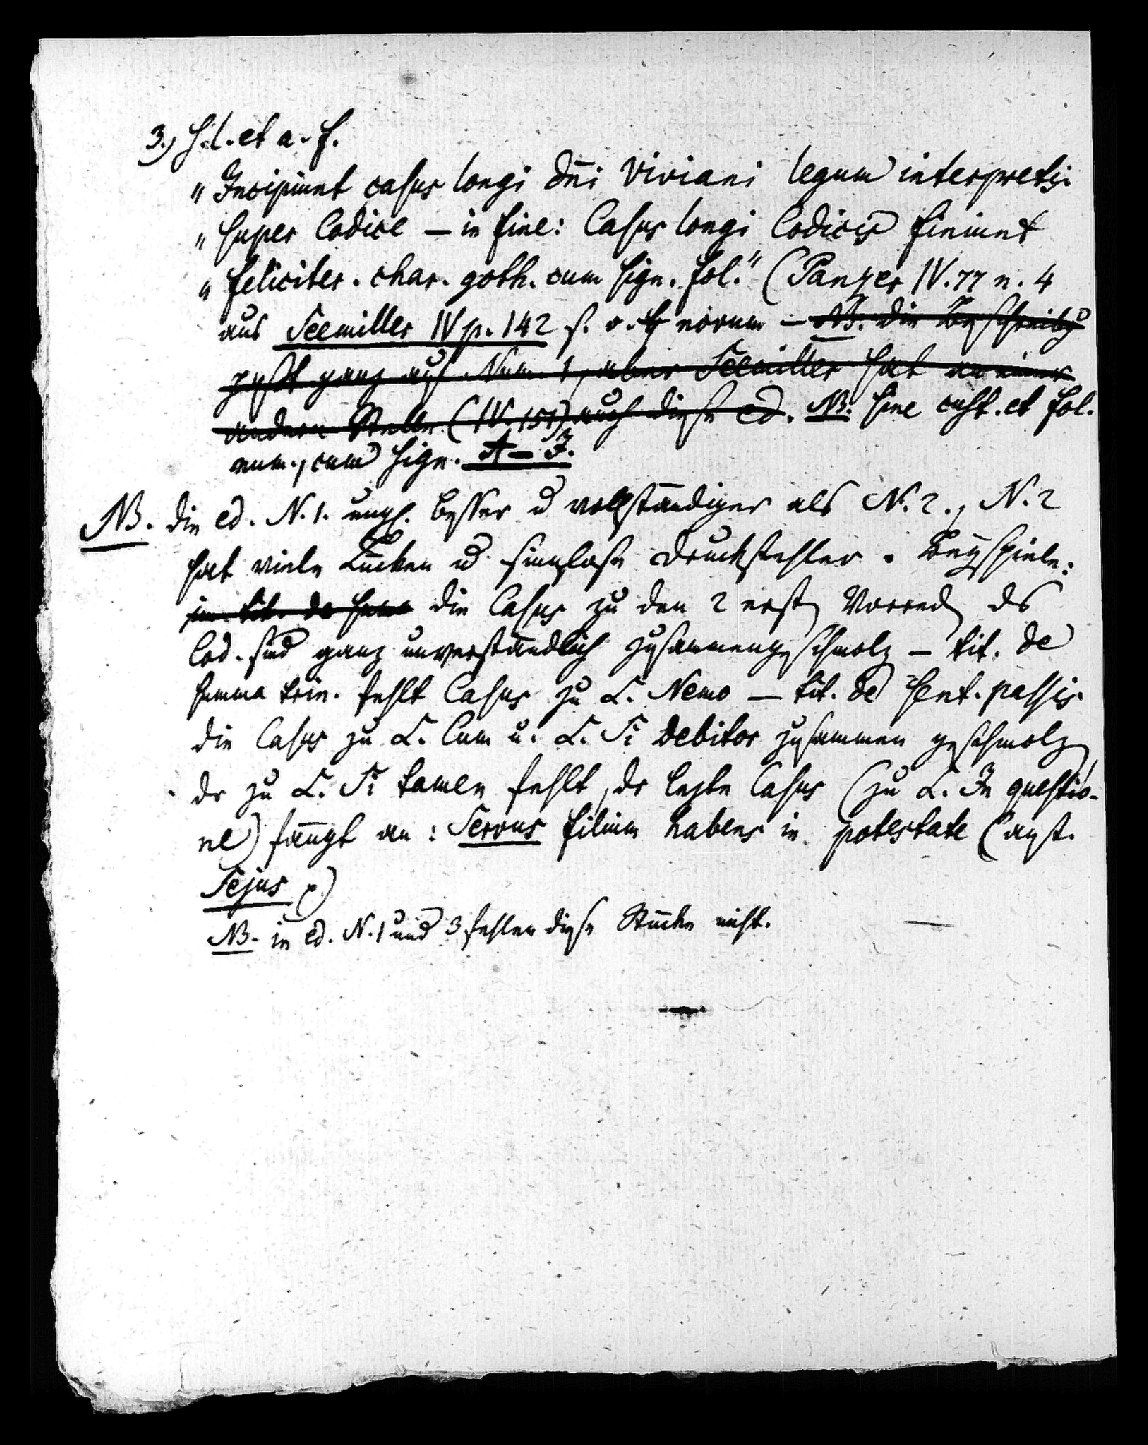 3.) s. l. et a. f.
„Incipiunt casus longi dn̄i Viviani legum interpretis
„super Codice – in fine: Casus longi Codicis finiunt
„feliciter. char. goth. cum sign. fol." (Panzer IV. 77 n. 4
aus Seemiller IV p. 142 s. v. – NB. die Beschreibg
paßt ganz auf Num. 1, aber Seemiller hat an einer
andern Stelle (IV. 151) auch diese ed. NB. sine cust. et fol.
num., cum sign. A – I.
NB. die ed. N. 1. ungl. besser u vollständiger als N. 2., N. 2
hat viele Lücken u sinnlose Druckfehler. Beyspiele:
im tit. de summa die Casus zu den 2 erst Vorred ds
Cod. sind ganz unverständlich zusammengeschmolz – tit. de
summa trin. fehlt Casus zu L. Nemo – tit. de sent. passis
die Casus zu L. Cum u. L. Si Debitor zusammen geschmolz,
dr zu L. Si tamen fehlt, dr lezte Casus (zu L. In questio-
ne) fängt an: Servus filium habens in potestate (anst.
Sejus)
NB. in ed. N. 1 und 3 fehlen diese Stücke nicht.